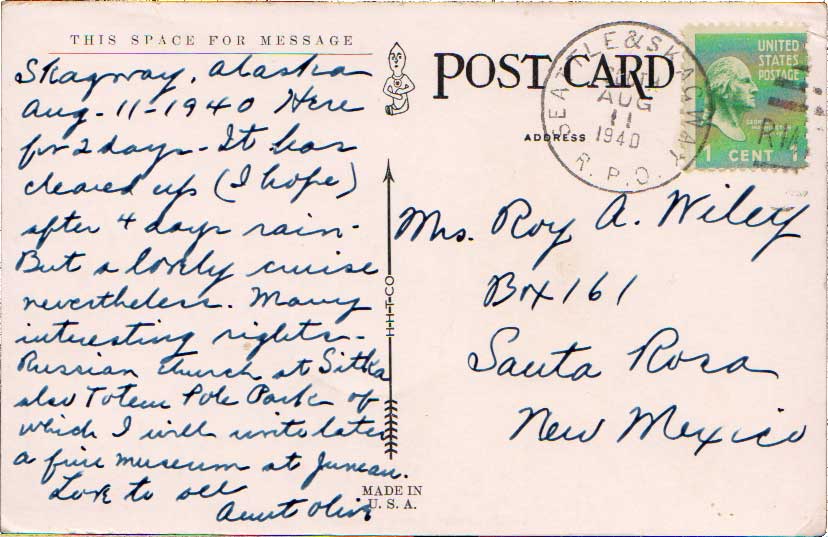 THIS SPACE FOR MESSAGE
Skagway, Alaska
Aug-11-1940 Here
for 2 days - It has
cleared up (I hope)
after 4 days rain -
But a lovely cruise
nevertheless. Many
interesting sights -
Russian church at Sitka
also Totem Pole Park of
which I will write later
a fine museum at Juneau.
Love to all
Aunt Olive
H-H-T-CO
MADE IN
U.S.A.
POST CARD
ADDRESS
SEATTLE & SKAGWAY
AUG
11
1940
R.P.O.
UNITED
STATES
POSTAGE
1 CENT 1
Mrs. Roy A. Wiley
Box 161
Santa Rosa
New Mexico